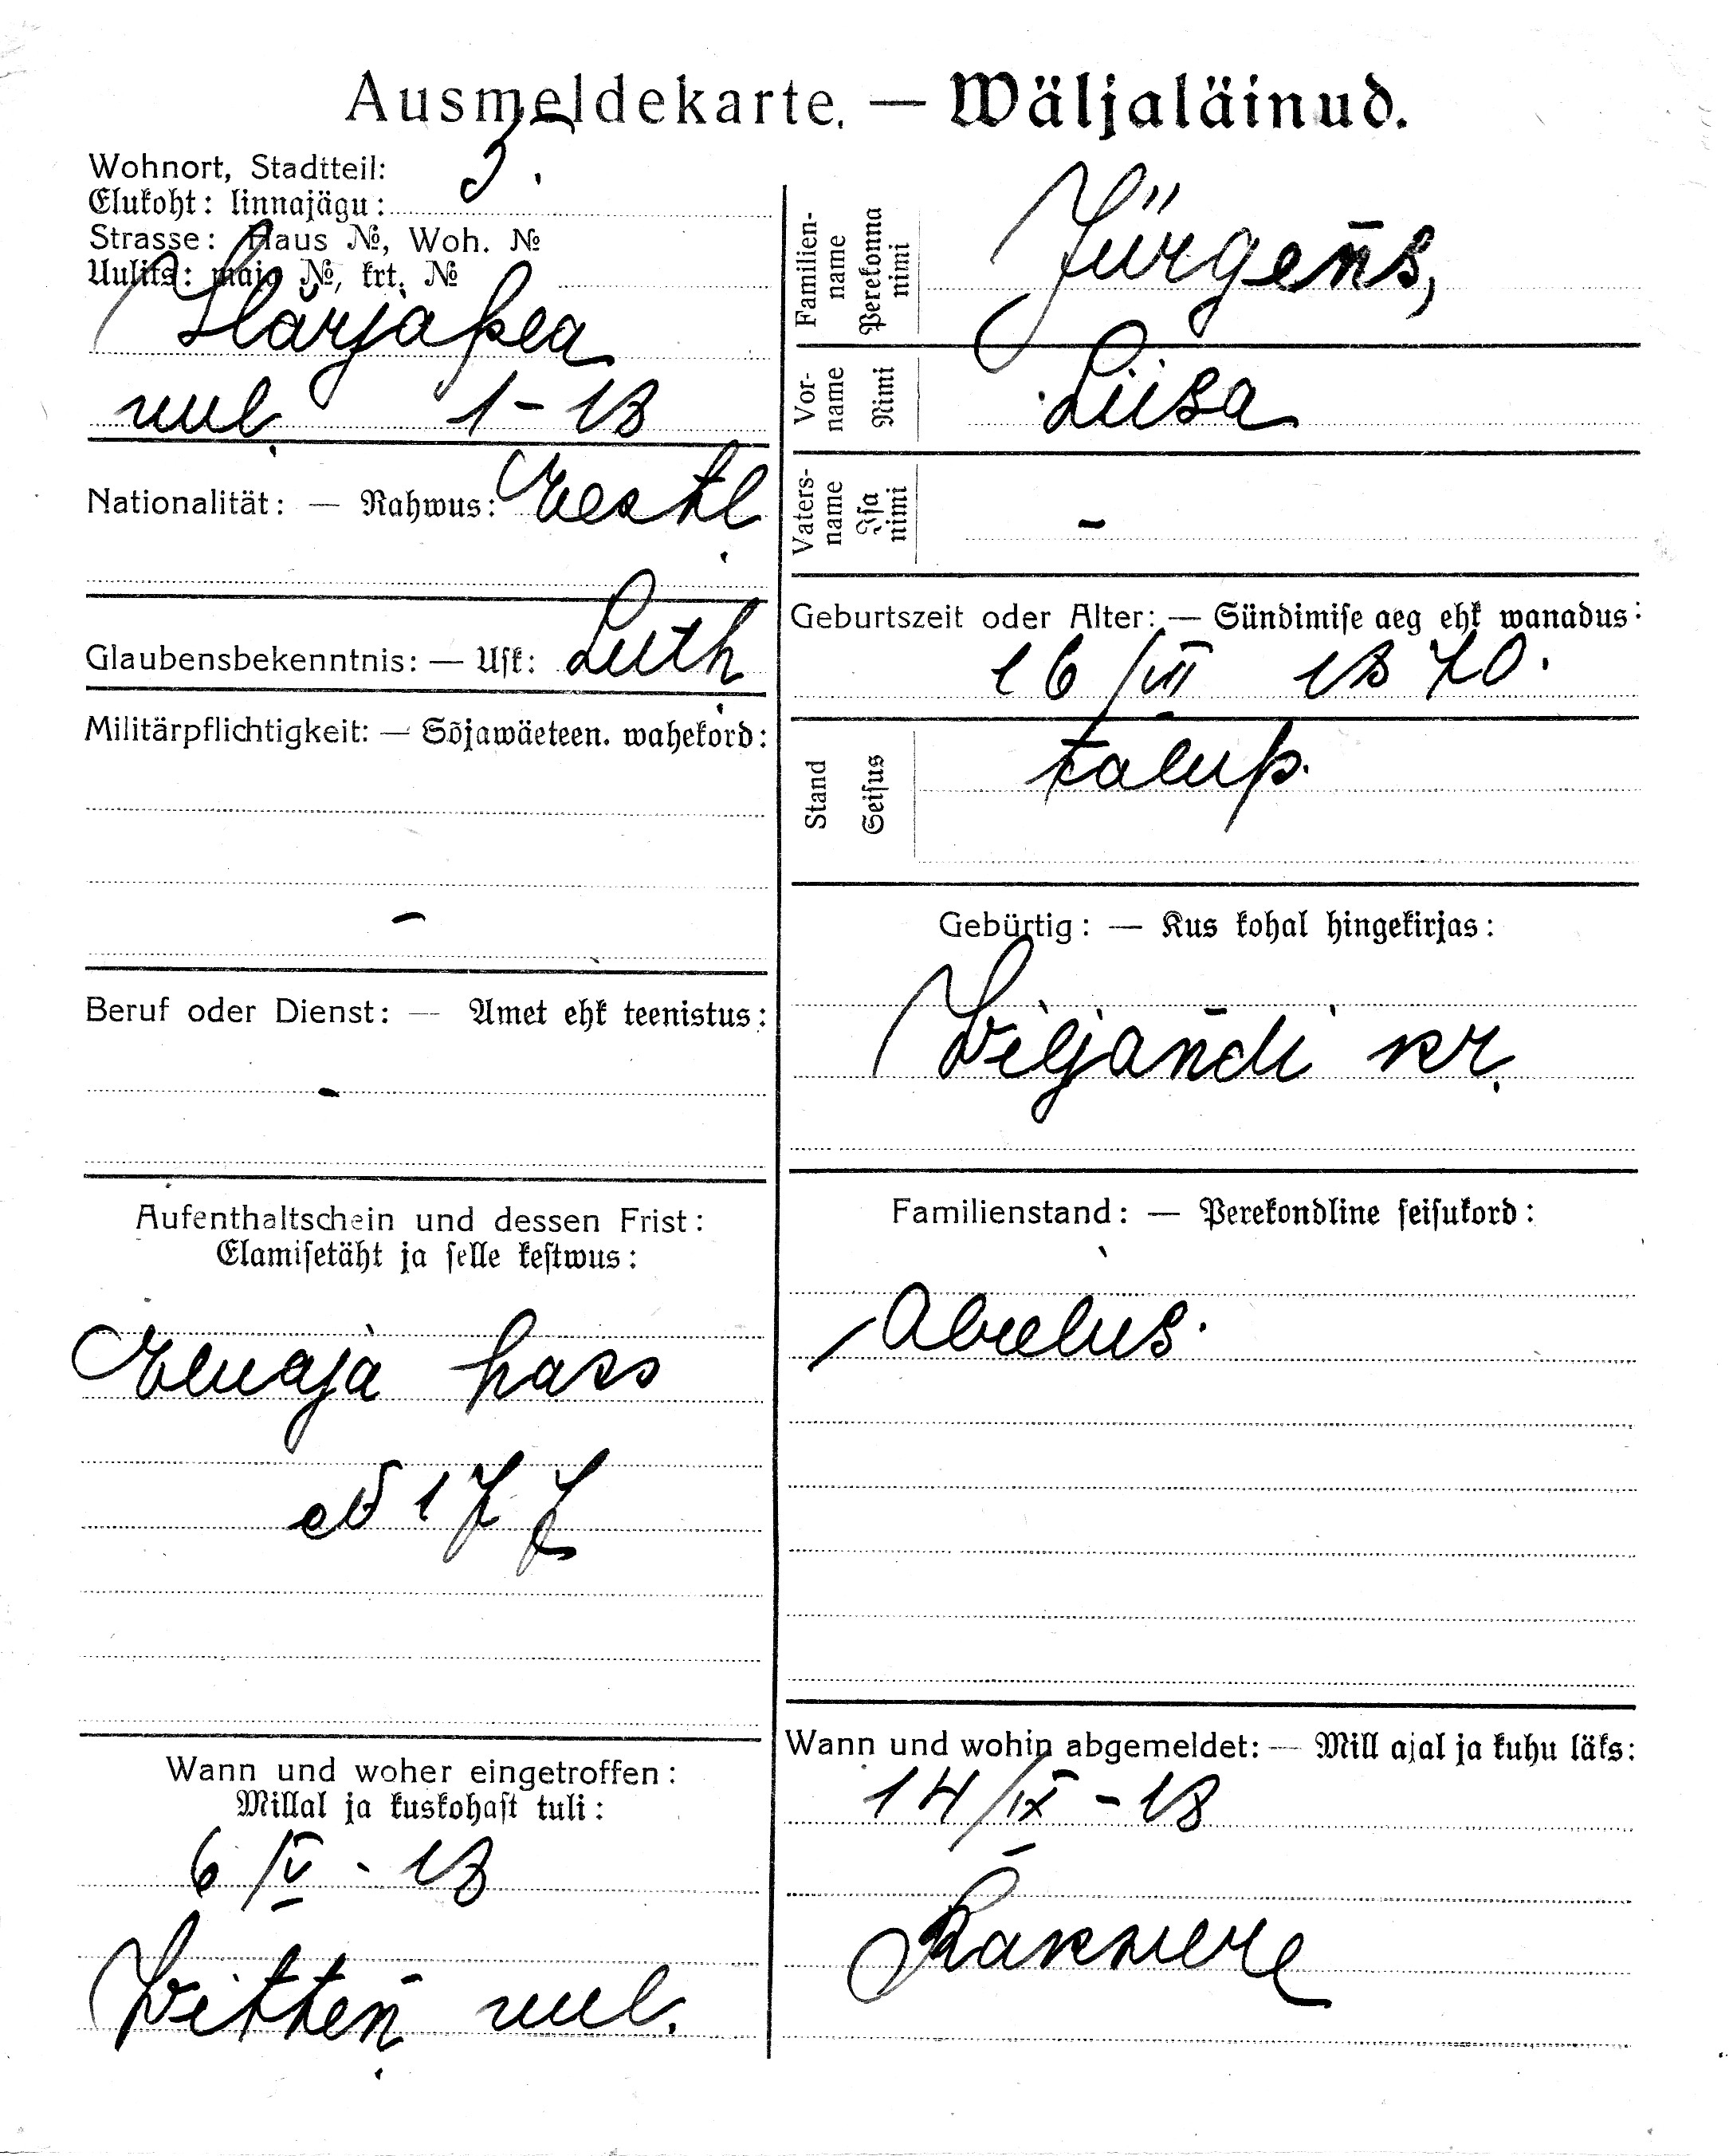 Ausmeldekarte. — Wäljaläinud.
Wohnort, Stadtteil:
Elukoht: linnajägu: 3.
Strasse: Haus №, Woh. №
Uulits: maja №, krt. №
Härjapea
uul. 1-18
Nationalität: — Rahwus: Eestl.
Glaubensbekenntnis: — Usk: Luth.
Militärpflichtigkeit: — Sõjawäeteen. wahekord:
-
Beruf oder Dienst: — Amet ehk teenistus:
-
Aufenthaltschein und dessen Frist:
Elamisetäht ja selle kestwus:
Eluaja pass
177
Wann und woher eingetroffen:
Millal ja kuskohast tuli:
6/V - 18
Witten uul.
Familien-
name
Perekonna
nimi
Jürgens,
Vor-
name
Nimi
Liisa
Vaters-
name
Isa
nimi
-
Geburtszeit oder Alter: — Sündimise aeg ehk wanadus:
16/VII 1870.
Stand
Seisus
talup.
Gebürtig: — Kus kohal hingekirjas:
Wiljandi kr.
Familienstand: — Perekondline seisukord:
Abielus.
Wann und wohin abgemeldet: — Mill ajal ja kuhu läks:
14/IX - 18
Rakwere